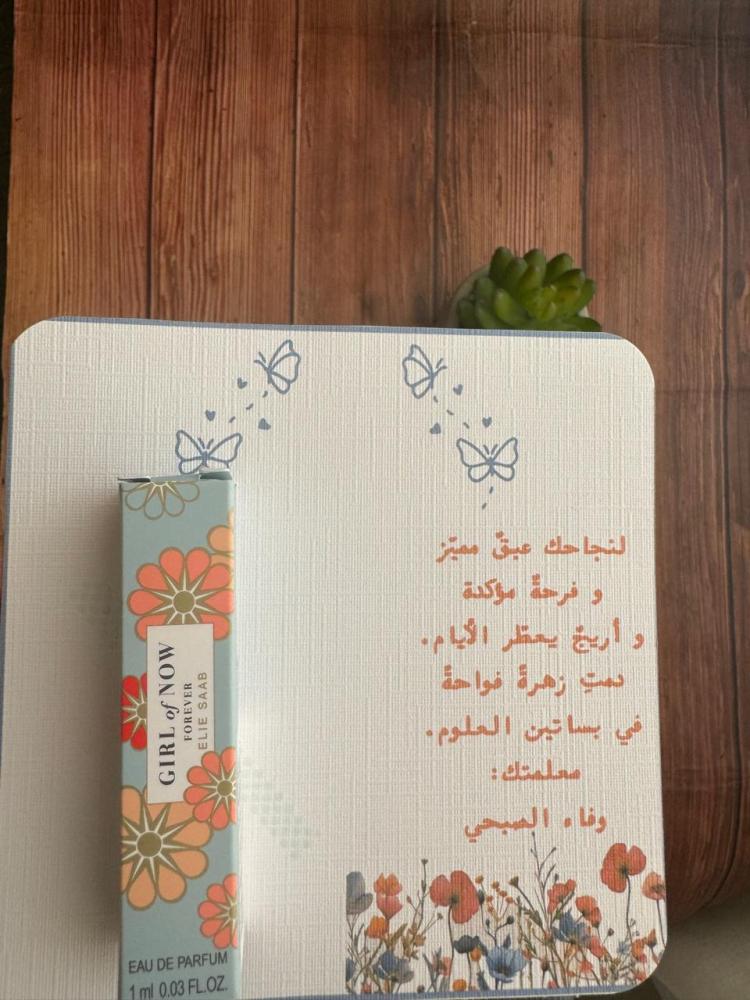 لنجاحك عبقٌ مميّز
و فرحةٌ مؤكدة
و أريجٌ يعطّر الأيام.
دمتِ زهرةً فواحةً
في بساتين العلوم.
معلمتك:
وفاء الصبحي
GIRL of NOW
FOREVER
ELIE SAAB
EAU DE PARFUM
1 ml 0.03 FL.OZ.